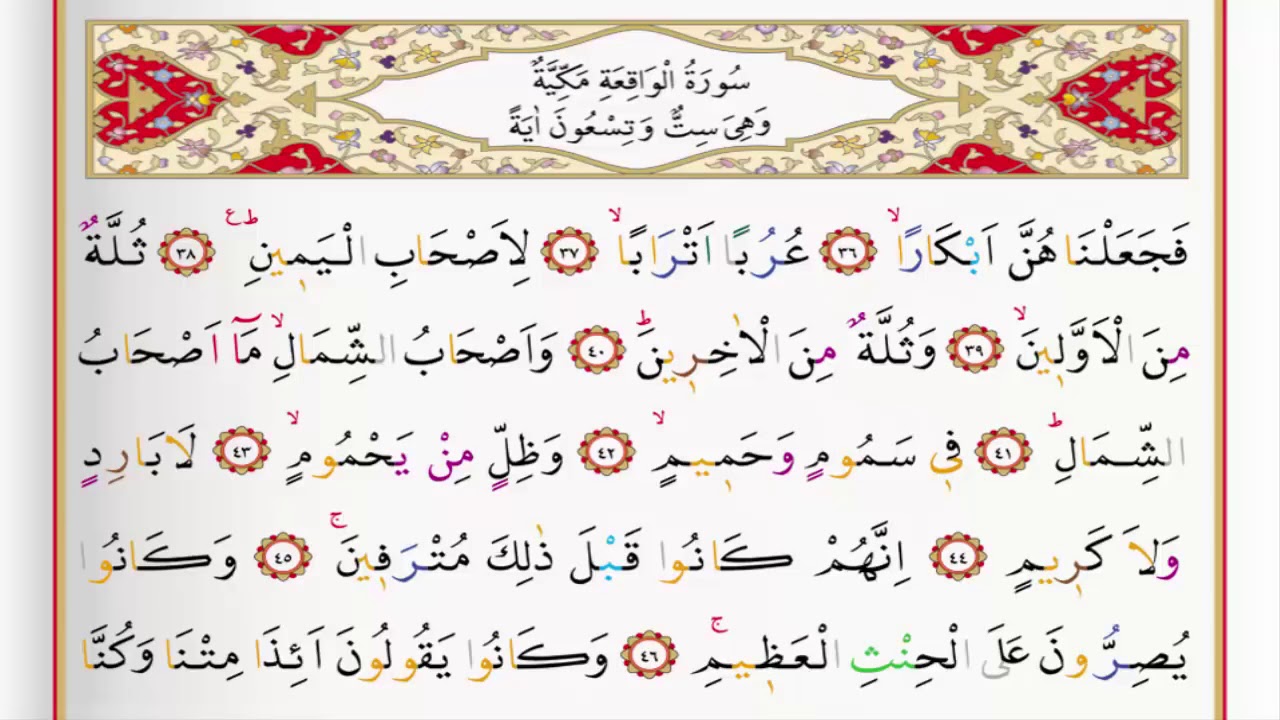 سُورَةُ الْوَاقِعَةِ مَكِّيَّةٌ
وَهِيَ سِتٌّ وَتِسْعُونَ اٰيَةً
فَجَعَلْنَاهُنَّ اَبْكَارًاۙ ﴿٣٦﴾ عُرُبًا اَتْرَابًاۙ ﴿٣٧﴾ لِاَصْحَابِ الْيَم۪ينِۜ ع ﴿٣٨﴾ ثُلَّةٌ
مِنَ الْاَوَّل۪ينَۙ ﴿٣٩﴾ وَثُلَّةٌ مِنَ الْاٰخِر۪ينَۜ ﴿٤٠﴾ وَاَصْحَابُ الشِّمَالِۙ مَٓا اَصْحَابُ
الشِّمَالِۜ ﴿٤١﴾ ف۪ي سَمُومٍ وَحَم۪يمٍۙ ﴿٤٢﴾ وَظِلٍّ مِنْ يَحْمُومٍۙ ﴿٤٣﴾ لَا بَارِدٍ
وَلَا كَر۪يمٍ ﴿٤٤﴾ اِنَّهُمْ كَانُوا قَبْلَ ذٰلِكَ مُتْرَف۪ينَۚ ﴿٤٥﴾ وَكَانُوا
يُصِرُّونَ عَلَى الْحِنْثِ الْعَظ۪يمِۚ ﴿٤٦﴾ وَكَانُوا يَقُولُونَ اَئِذَا مِتْنَا وَكُنَّا